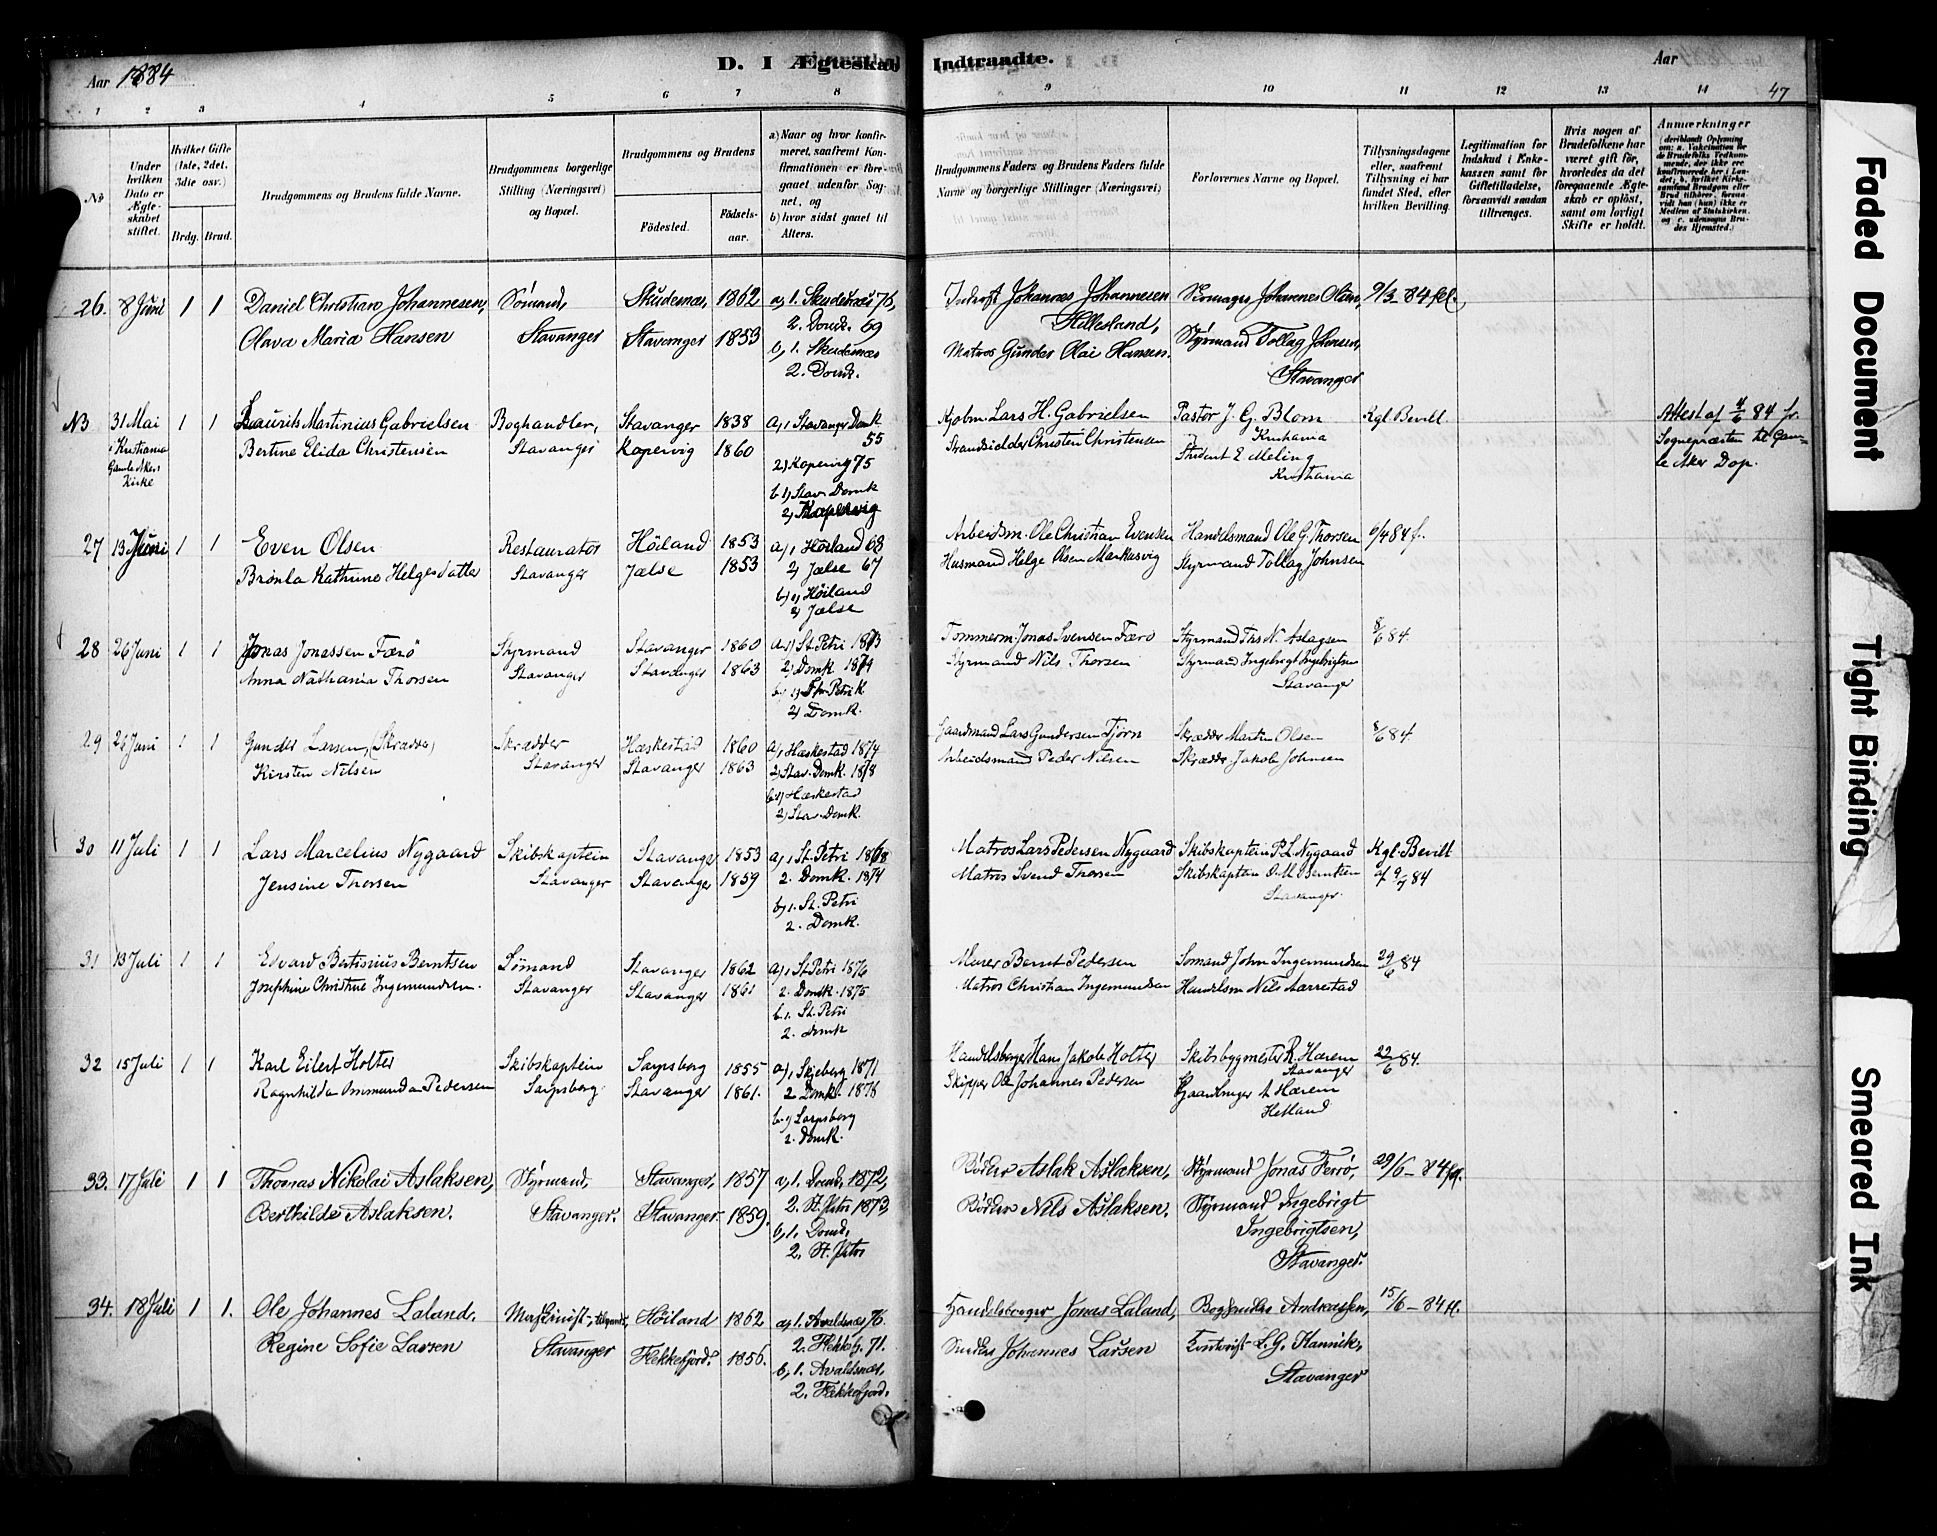 Aar 1884
D. I Ægteskab Indtraadte.
Aar
47
1 2 3 4 5 6 7 8 9 10 11 12 13 14
No
Under hvilken Dato er Ægteskabet stiftet.
Hvilket Gifte (1ste, 2det, 3die osv.)
Brdg. Brud.
Brudgommens og Brudens fulde Navne.
Brudgommens borgerlige Stilling (Næringsvei) og Bopæl.
Brudgommens og Brudens
Fødested.
Fødselsaar.
a) Naar og hvor konfirmeret, saafremt Konfirmationen er foregaaet udenfor Sognet, og
b) hvor sidst gaaet til Alters.
Brudgommens Faders og Brudens Faders fulde Navne og borgerlige Stillinger (Næringsvei).
Forlovernes Navne og Bopæl.
Tillysningsdagene eller, saafremt Tillysning ei har fundet Sted, efter hvilken Bevilling.
Legitimation for Indskud i Enkekassen samt for Giftetilladelse, forsaavidt saadan tiltrænges.
Hvis nogen af Brudefolkene har været gift før, hvorledes da det foregaaende Ægteskab er opløst, samt om lovligt Skifte er holdt.
Anmærkninger
26. 8 Juni 1 1 Daniel Christian Johannesen, Sømand, Skudesnæs, 1862 a, 1. Skudesnæs 76, Johannes Johannesen Johannes Olsen, 9/3 84 fol.
Olava Maria Hansen Stavanger Stavanger 1853 2. Domk. 69 Hillesland, Styrmand Tollag Johnsen,
b, 1. Skudesnæs Matros Gunder Olai Hansen.
2. Domk. Stavanger
NB 31 Mai 1 1 Laurits Martinius Gabrielsen Boghandler, Stavanger 1838 a, 1 Stavanger Domk 55 Kjøbm. Lars H. Gabrielsen Pastor J. G. Blom Kgl Bevill. Attest af 4/6 84 fr.
i Kristiania Bertine Elida Christensen Stavanger Kopervig 1860 2) Kopervig 75 Strandsidder Christen Christensen Kristiania Sognepræsten til Gam-
Gamle Akers Kirke b 1) Stav. Domk Student E. Meling le Aker Dap.
2) Kopervig Kristiania
27 13 Juni 1 1 Even Olsen Restauratør Höiland 1853 a, 1 Höiland 68 Arbeidsm. Ole Christian Evensen Handelsmand Ole G. Thorsen 6/4 84 f.
Brønla Kathrine Helgesdatter Stavanger Jælse 1853 2) Jælse 67 Husmand Helge Olsen Markusvig Styrmand Tollag Johnsen
b, 1) Höiland
2) Jælse
28 26 Juni 1 1 Jonas Jonassen Færø Styrmand Stavanger 1860 a, 1) St. Petri 1873 Tømmerm. Jonas Svensen Færø Styrmand Ths N. Aslagsen 8/6 84.
Anna Nathania Thorsen Stavanger Stavanger 1863 2) Domk 1879 Styrmand Nils Thorsen Styrmand Ingebrigt Ingebrigtsen
b, 1) St. Petri K Stavanger
2) Domk.
29 26 Juni 1 1 Gunder Larsen, (Skrædder) Skrædder Hæskestad 1860 a, Hæskestad 1874 Gaardmand Lars Gundersen Tjörn Skrædder Martin Olsen 8/6 84.
Kirsten Nilsen Stavanger Stavanger 1863 2) Stav. Domk. 1878 Arbeidsmand Peder Nilsen Skrædder Jakob Johnsen
b 1) Hæskestad
2) Stav. Domk.
30 11 Juli 1 1 Lars Marcelius Nygaard Skibskaptein Stavanger 1853 a, 1 St. Petri 1868 Matros Lars Pedersen Nygaard Skibskaptein P. L. Nygaard Kgl. Bevill
Jensine Thorsen Stavanger Stavanger 1859 2. Domk. 1874 Matros Svend Thorsen Skibskaptein O. M. Berntsen af 9/7 84
b, 1. St. Petri Stavanger.
2. Domk.
31 13 Juli 1 1 Edvard Bertinius Berntsen Sømand Stavanger 1862 a, 1 St Petri 1876 Murer Bernt Pedersen Sømand John Ingemundsen 29/6 84
Josephine Christine Ingemundsen. Stavanger Stavanger 1861 2. Domk. 1875 Matros Christian Ingemundsen Handelsm Nils Aarrestad
b. 1. St. Petri
2. Domk
32 15 Juli 1 1 Karl Eilert Holter Skibskaptein Sarpsborg 1855 a, 1 Skjeberg 1871 Handelsborger Hans Jakob Holter Skibsbygmester R. Hærem 22/6 84.
Ragnhilda Osmunda Pedersen Sarpsborg. Stavanger 1861. 2 Domk. 1876 Skipper Ole Johannes Pedersen Stavanger
b. 1) Sarpsborg Gaardbruger A Hærem
2. Domk. Hetland
33. 17 Juli 1 1 Thomas Nikolai Aslaksen, Styrmand, Stavanger, 1857 a, 1. Domk, 1872, Bödker Aslak Aslaksen, Styrmand Jonas Ferrø, 29/6 - 84 fol.
Berthilde Aslaksen. Stavanger. Stavanger. 1859. 2. St. Petri 1873 Bödker Nils Aslaksen. Styrmand Ingebrigt
b, 1. Domk, Ingebrigtsen,
2. St. Petri Stavanger.
34. 18 Juli 1 1. Ole Johannes Laland. Maskinist, Höiland 1862 a, 1. Avaldsnæs 76. Handelsborger Jonas Laland, Boghandler Andreassen, 15/6 - 84 fl.
Regine Sofie Larsen Stavanger Flekkefjord. 1856. 2. Flekkefj. 71. Johannes Larsen L. G. Hannik,
b, 1. Avaldsnæs, Stavanger
2. Flekkefjord.
Faded Document
Tight Binding
Smeared Ink